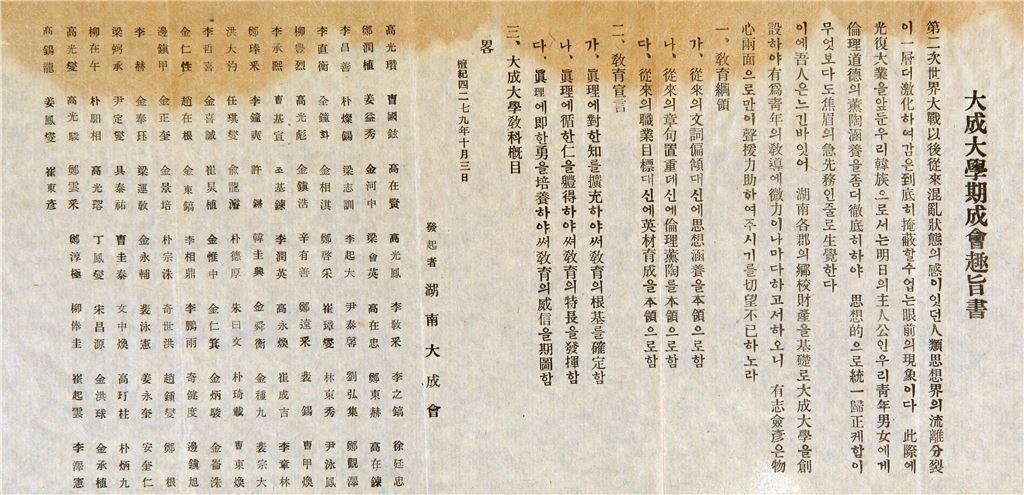 大成大學期成會趣旨書
第二次世界大戰以後從來混亂狀態의感이잇던人類思想界의流離分裂
이一層더激化하여감은到底히掩蔽할수업는眼前의現象이다 此際에
光復大業을앞둔우리韓族으로서는明日의主人公인우리靑年男女에게
倫理道德의薰陶涵養을좀더徹底히하야 思想的으로統一歸正케함이
무엇보다도焦眉의急先務인줄로生覺한다
이에吾人은느긴바잇어 湖南各郡의鄕校財產을基礎로大成大學을創
設하야有爲靑年의敎導에微力이나마다하고저하오니 有志僉彥은物
心兩面으로만이聲援力助하여주시기를切望不已하노라
一、敎育綱領
가、從來의文詞偏傾대신에思想涵養을本領으로함
나、從來의章句置重대신에倫理薰陶를本領으로함
다、從來의職業目標대신에英材育成을本領으로함
二、敎育宣言
가、眞理에對한知를擴充하야써敎育의根基를確定함
나、眞理에循한仁을軆得하야써敎育의特長을發揮함
다、眞理에即한勇을培養하야써敎育의威信을期圖함
三、大成大學敎科槪目
畧
檀紀四二七九年十月三日
發起者 湖南大成會
高光瓚 曺國鉉 高在賢 高光鳳 李敎釆 李之鎬 徐廷忠
鄭潤植 姜益秀 金河中 梁會英 高在忠 鄭東赫 高在鍊
李昌善 朴燦錫 梁志訓 李起大 尹泰馨 劉弘集 鄭觀澤
李直衡 全鍾和 金相淇 鄭啓采 崔璋燮 林東秀 尹泳煥
柳豊烈 高光彪 金鎭浩 辛有善 鄭遠采 裴錫 曺甲煥
李承熙 曺基宣 李基鍊 李潤英 高永煥 崔成吉 李章林
鄭琫采 李鍾奭 許 韓圭興 金舜衡 金種九 裴宗大
洪大灼 任琪燮 兪龍濬 朴德厚 朱日文 朴琦載 曺東煥
李哲 金喜誠 崔炅植 金惟中 金仁箕 金炳駿 金崙洙
金仁性 趙在根 金東鎬 李相鼎 李鵬雨 奇健度 邊鎭旭
邊鎭甲 金正奎 金景培 朴宗洙 奇世洪 趙鍾燮 鄭根
李赫 金奉珏 梁運敎 金永輔 裴泳憲 姜永奎 安奎仁
梁弼承 尹定燮 具泰祐 曺圭泰 文中煥 高玗柱 朴炳九
柳在午 朴朋相 高光瑢 丁鳳燮 宋昌源 金洪球 金承植
高光燮 高光駿 鄭雲采 鄭淳極 柳俸圭 崔起雲 李澤憲
高錫龍 姜鳳燮 崔東彥